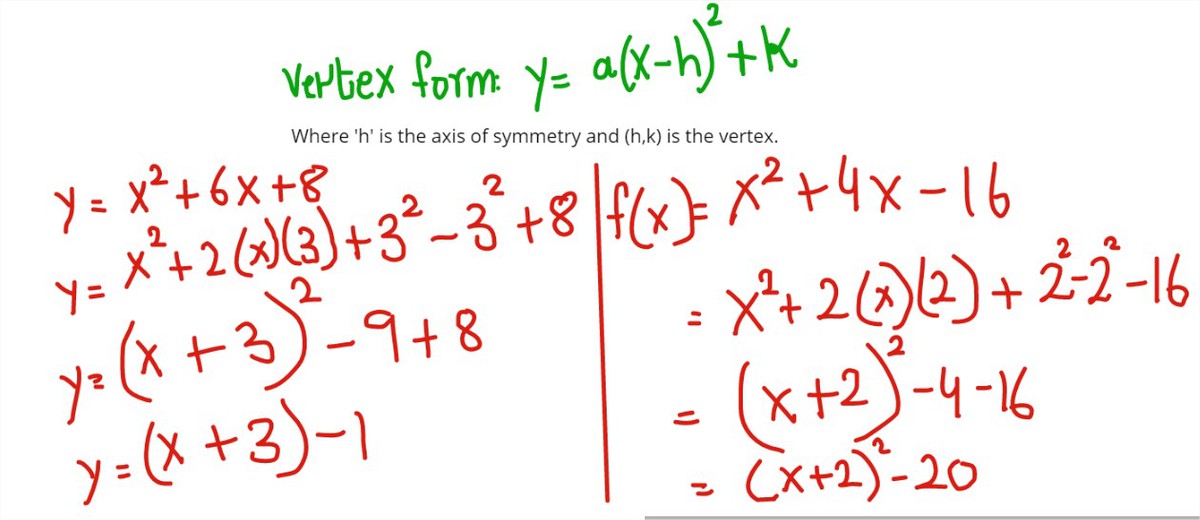 Vertex form: y = a(x-h)² + k
Where 'h' is the axis of symmetry and (h,k) is the vertex.
y = x² + 6x + 8
y = x² + 2(x)(3) + 3² - 3² + 8
y = (x + 3)² - 9 + 8
y = (x + 3) - 1
f(x) = x² + 4x - 16
= x² + 2(x)(2) + 2² - 2² - 16
= (x + 2)² - 4 - 16
= (x + 2)² - 20